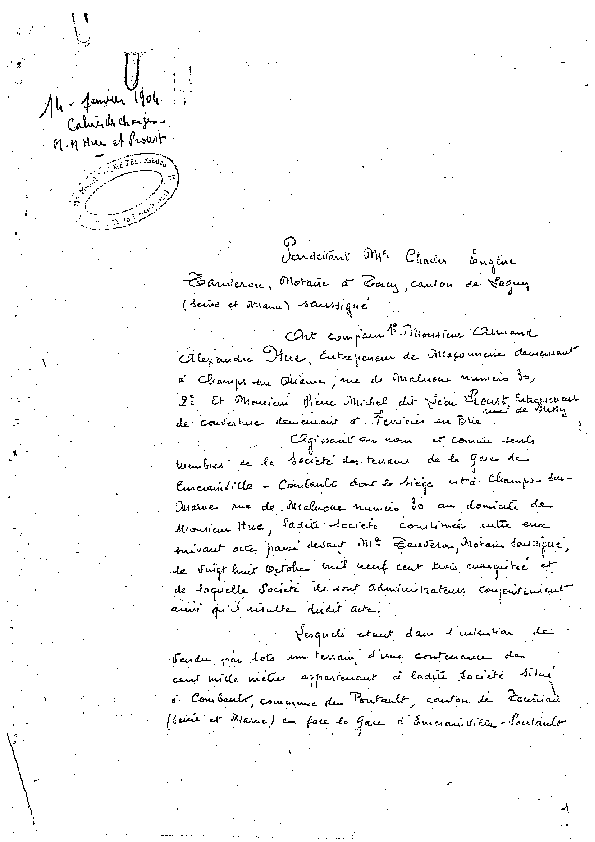 14 - février 1904
Cahier des charges
M.M Hue et Proust
Pardevant Me Charles Eugène
Tauveron, Notaire à Torcy, canton de Lagny
(Seine et Marne) soussigné
Ont comparu 1º Monsieur Armand
Alexandre Hue, Entrepreneur de Maçonnerie demeurant
à Champs sur Marne, rue de Malnoue numéro 30,
2º Et Monsieur Pierre Michel dit Léon Proust, Entrepreneur
de couverture demeurant à Ferrières en Brie rue de
Agissant au nom et comme seuls
membres de la Société des terrains de la Gare de
Emerainville - Combault dont le siège est à Champs-sur-
Marne rue de Malnoue numéro 30 au domicile de
Monsieur Hue, ladite Société constituée entre eux
suivant acte passé devant Me Tauveron, Notaire soussigné,
le vingt huit Octobre mil neuf cent trois enregistré et
de laquelle Société ils sont administrateurs conjointement
ainsi qu'il résulte dudit acte.
Lesquels étant dans l'intention de
vendre par lots un terrain d'une contenance de
cent mille mètres appartenant à ladite Société situé
à Combault, commune de Pontault, canton de Tournan
(Seine et Marne) en face la Gare d'Emerainville-Pontault
1